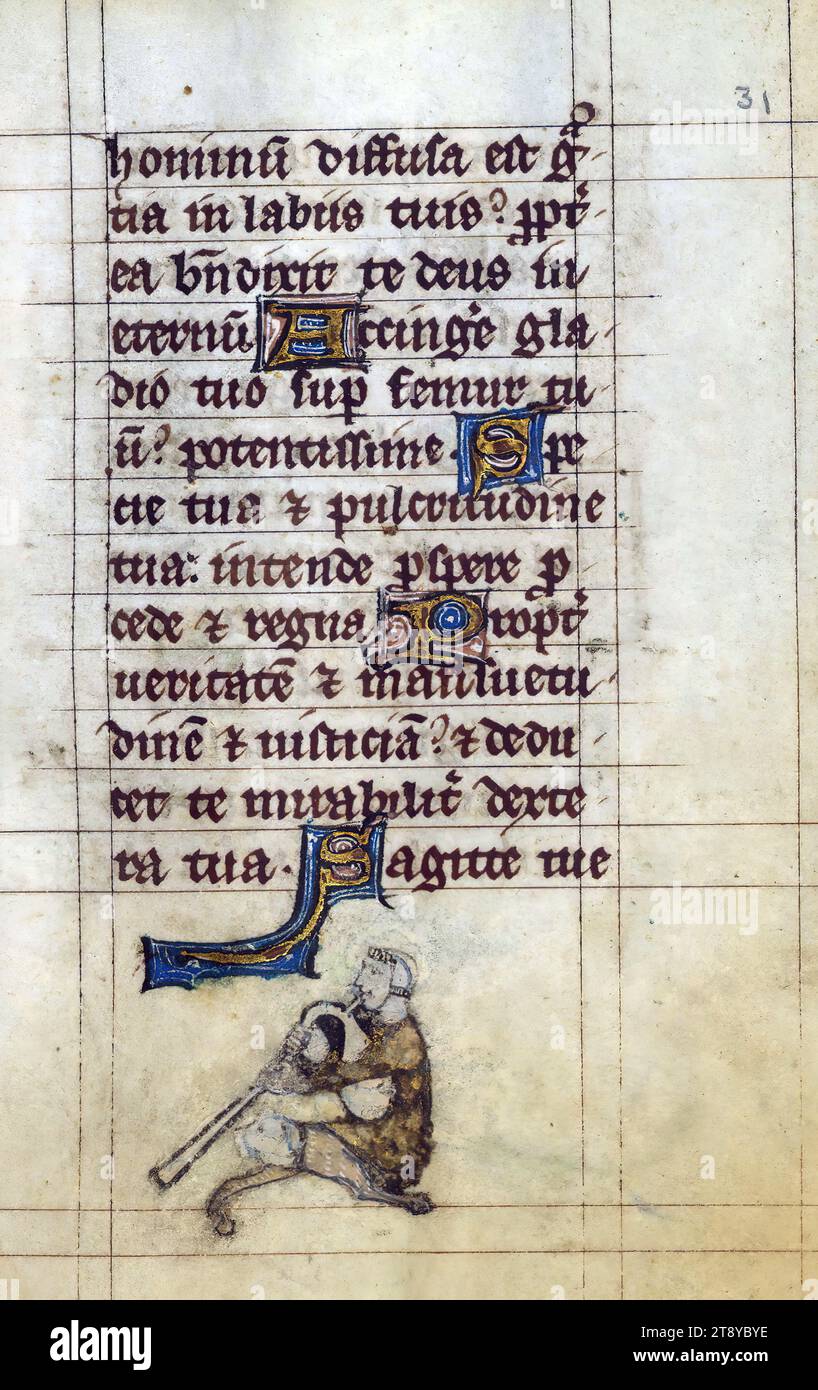 31
hominū diffusa est gͣ-
tia in labiis tuis? ꝓpt̉-
ea bn̄dixit te deus in
eternū Accinge̾ gla-
dio tuo sup̱ femur tu-
ū? potentissime. Spe
cie tua ⁊ pulcritudine
tua: intende ꝓspere ꝓ
cede ⁊ regna Propt̉
ueritatē ⁊ mansuetu-
dinē ⁊ iusticiā? ⁊ dedu-
cet te mirabilit̉ dexte-
ra tua. Sagitte tue
alamy
alamy
Image ID: 2T8YBYE
www.alamy.com